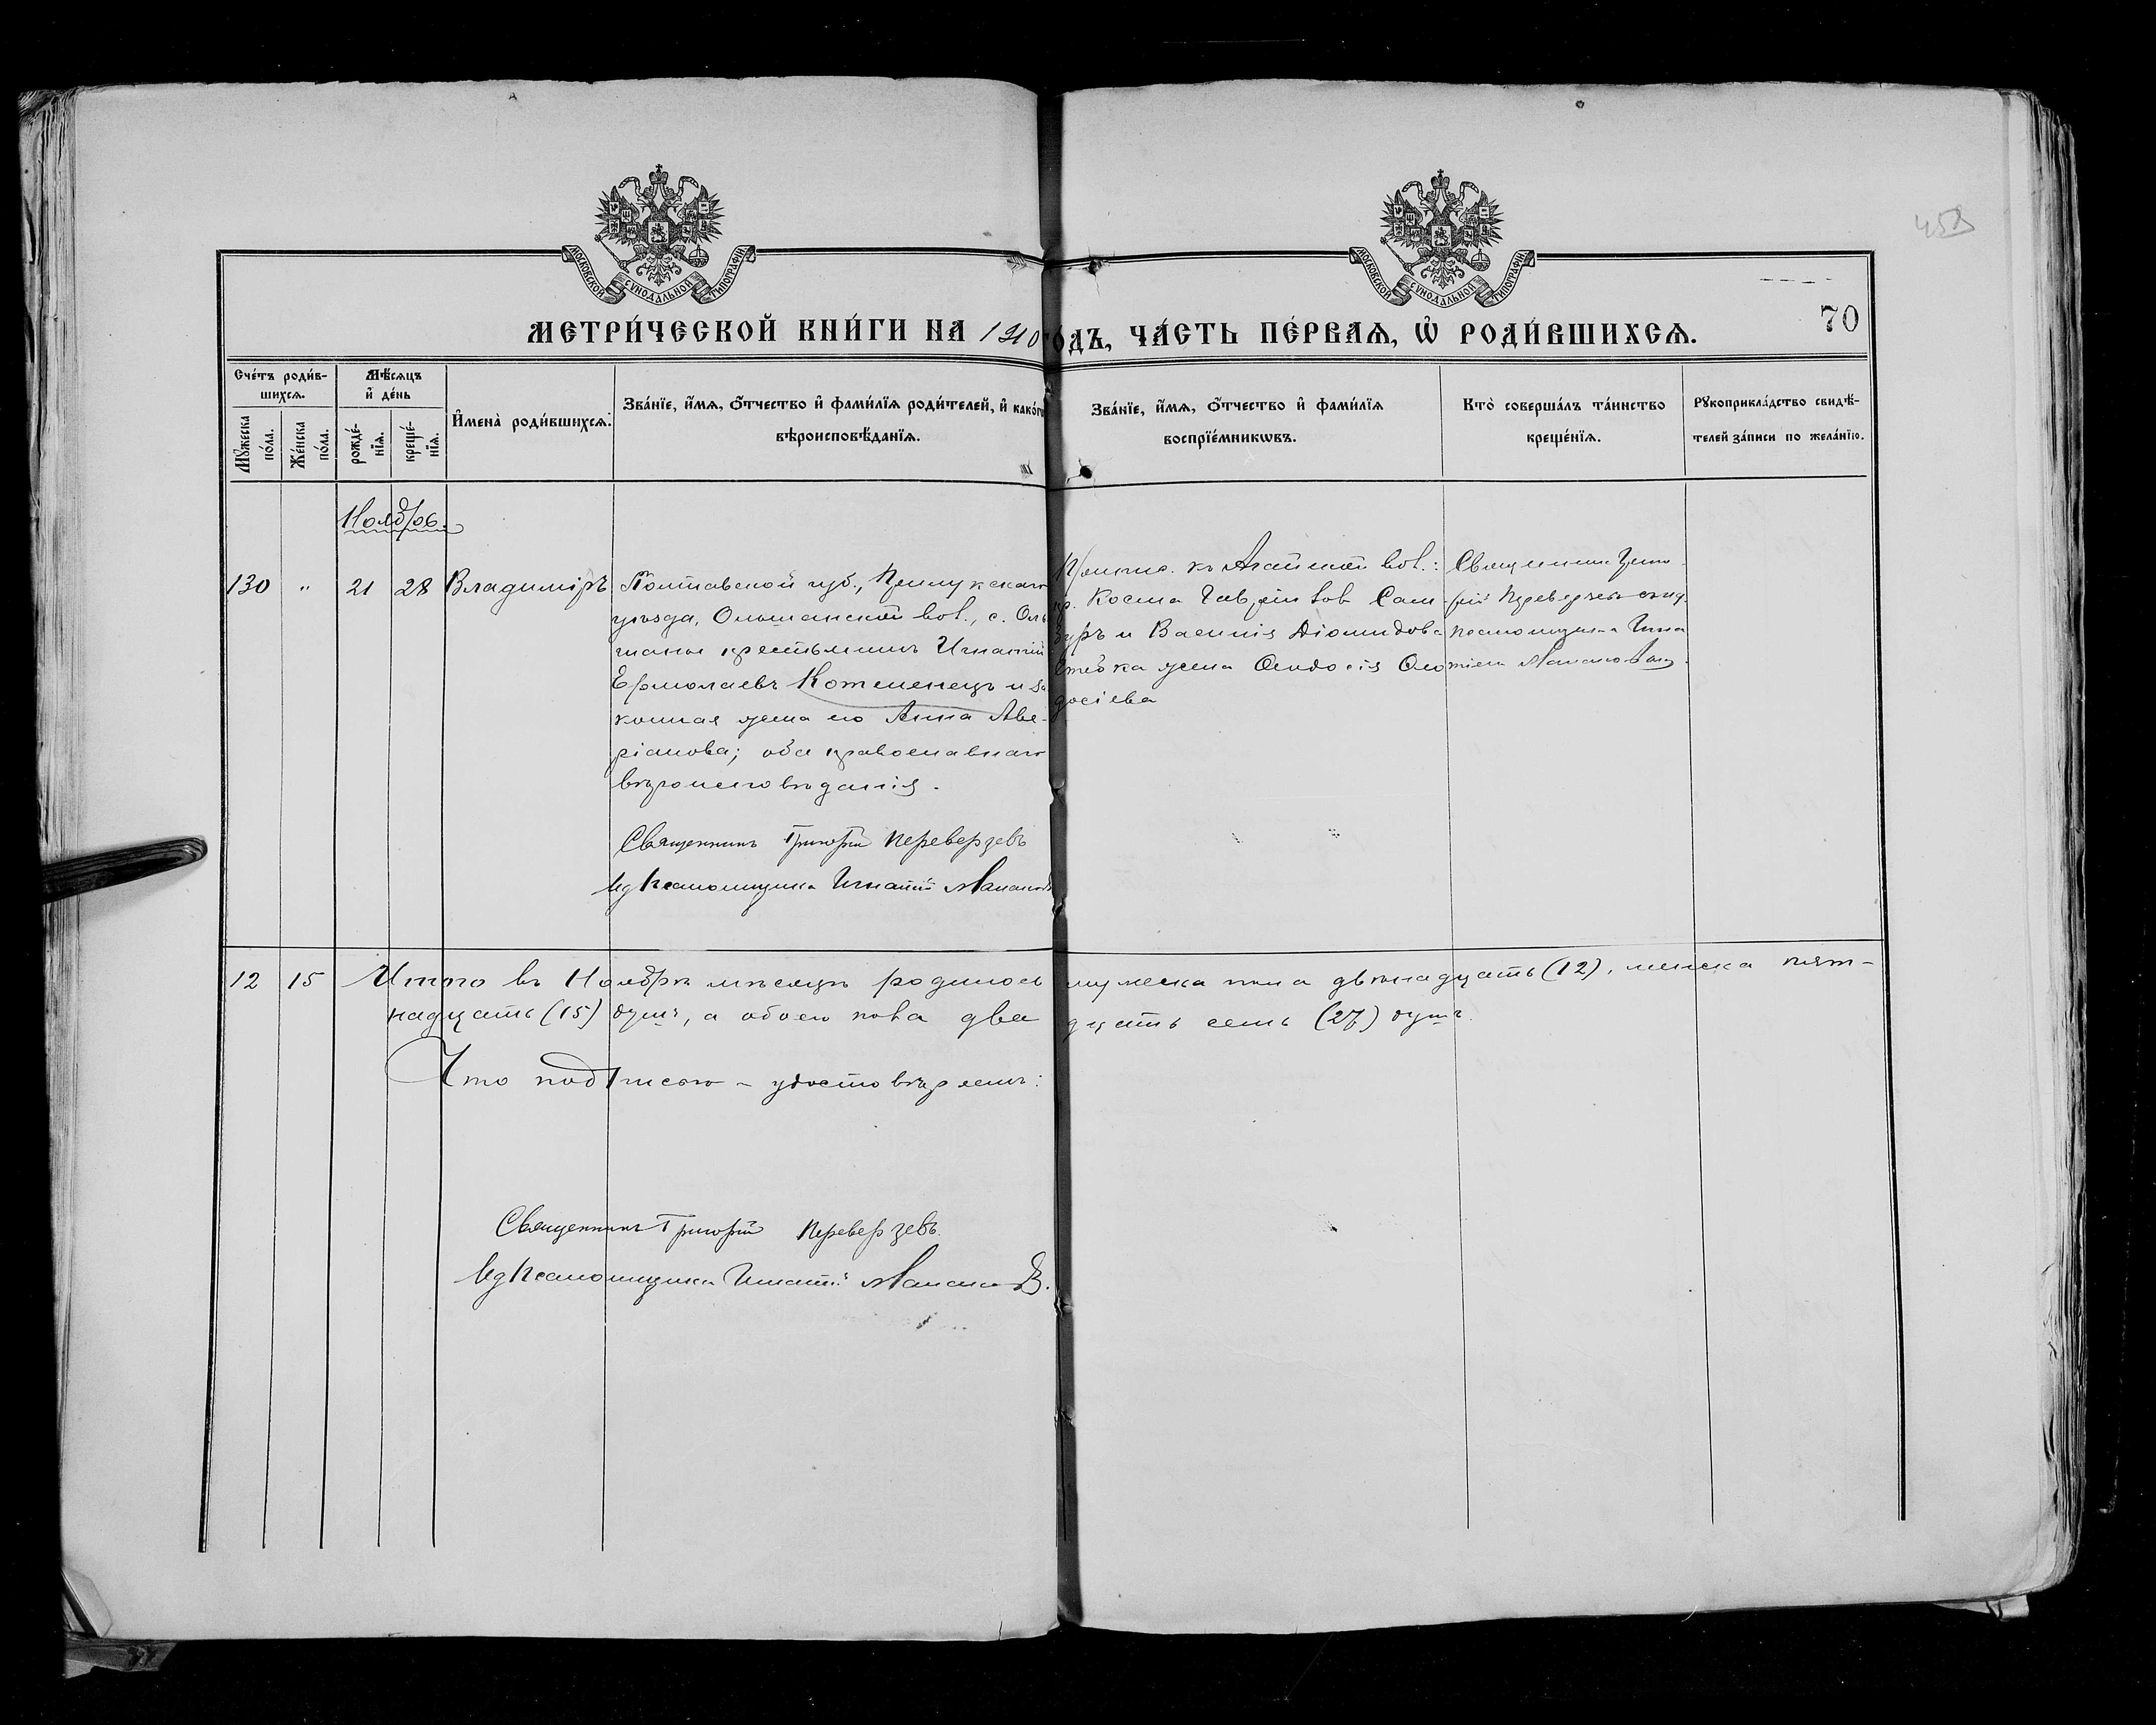 458
МОСКОВСКОЙ СѴНОДАЛЬНОЙ ТИПОГРАФІИ
МОСКОВСКОЙ СѴНОДАЛЬНОЙ ТИПОГРАФІИ
70
МЕТРИ́ЧЕСКОЙ КНИ́ГИ НА 1910 го́дъ, ЧА́СТЬ ПЕ́РВАѦ, Ѽ РОДИ́ВШИХСѦ.
Сче́тъ роди́в-
шихсѧ.
Мѣ́сѧцъ
и҆ де́нь
Мꙋжеска
по́ла.
Же́нска
по́ла.
рожде́-
нїѧ.
креще́-
нїѧ.
И҆мена̀ роди́вшихсѧ.
Зва́нїе, и҆́мѧ, ѻ҆́тчество и҆ фами́лїѧ роди́телей, и҆ како́гѡ
вѣроисповѣ́данїѧ.
Зва́нїе, и҆́мѧ, ѻ҆́тчество и҆ фами́лїѧ
воспрїе́мникѡвъ.
Кто̀ соверша́лъ та́инство
креще́нїѧ.
Рꙋкоприкла́дство свидѣ́-
телей за́писи по жела́нїю.
Ноябрь.
130 " 21 28 Владиміръ
Полтавской губ., Прилукскаго
уѣзда, Ольшанской вол., с. Оль
шаны крестьянинъ Игнатій
Ермолаевъ Котенецъ и за
конная жена его Анна Аве-
ріанова; оба православнаго
вѣроисповѣданія.
Священникъ Григорій Переверзевъ
Ид Псаломщика Игнатій
Причис. къ вол.:
кр. Косма Гавріиловъ Сам-
буръ и Василія Діомидова
жена Ѳеодосія
досіева
Священникъ Григо-
рій Переверзевъ
псаломщика Игна
тій
12 15 Итого въ Ноябрѣ мѣсяцѣ родилось мужеска пола двѣнадцать (12), женска пят-
надцать (15) душъ, а обоего пола двадцать семь (27) душъ.
Что подписью - удостовѣряемъ:
Священникъ Григорій Переверзевъ.
Ид Псаломщика Игнатій